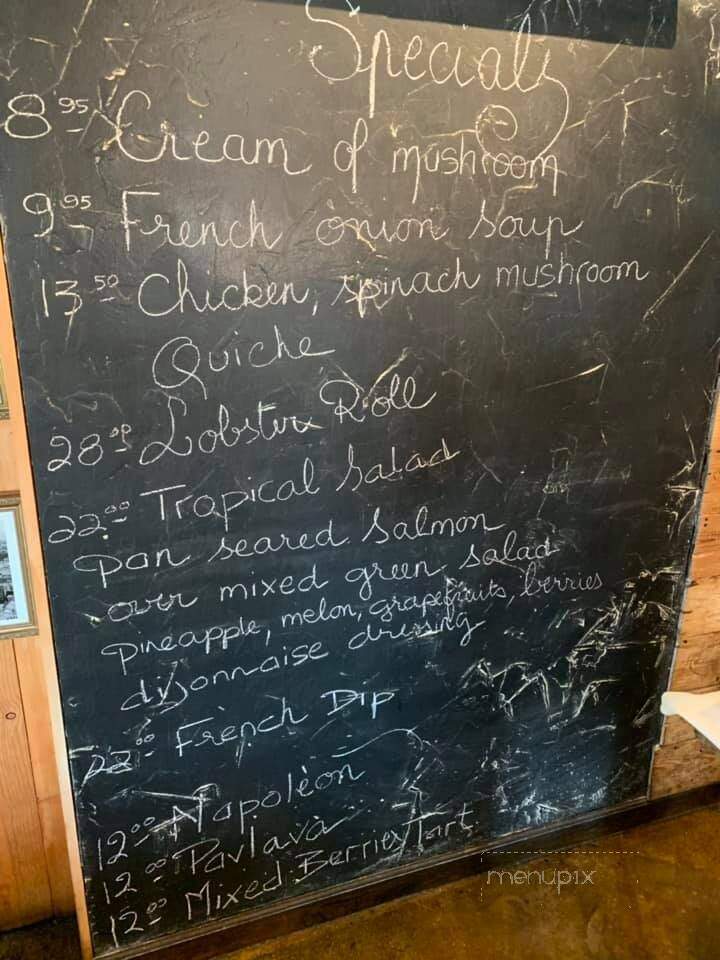 Specials
8 95 Cream of mushroom
9 95 French onion soup
13 50 Chicken, spinach mushroom
Quiche
28 00 Lobster Roll
22 00 Tropical Salad
pan seared salmon
over mixed green salad
pineapple, melon, grapefruits, berries
dijonnaise dressing
22 00 French Dip
12 00 Napoléon
12 00 Pavlava
12 00 Mixed Berries Tart
menupix